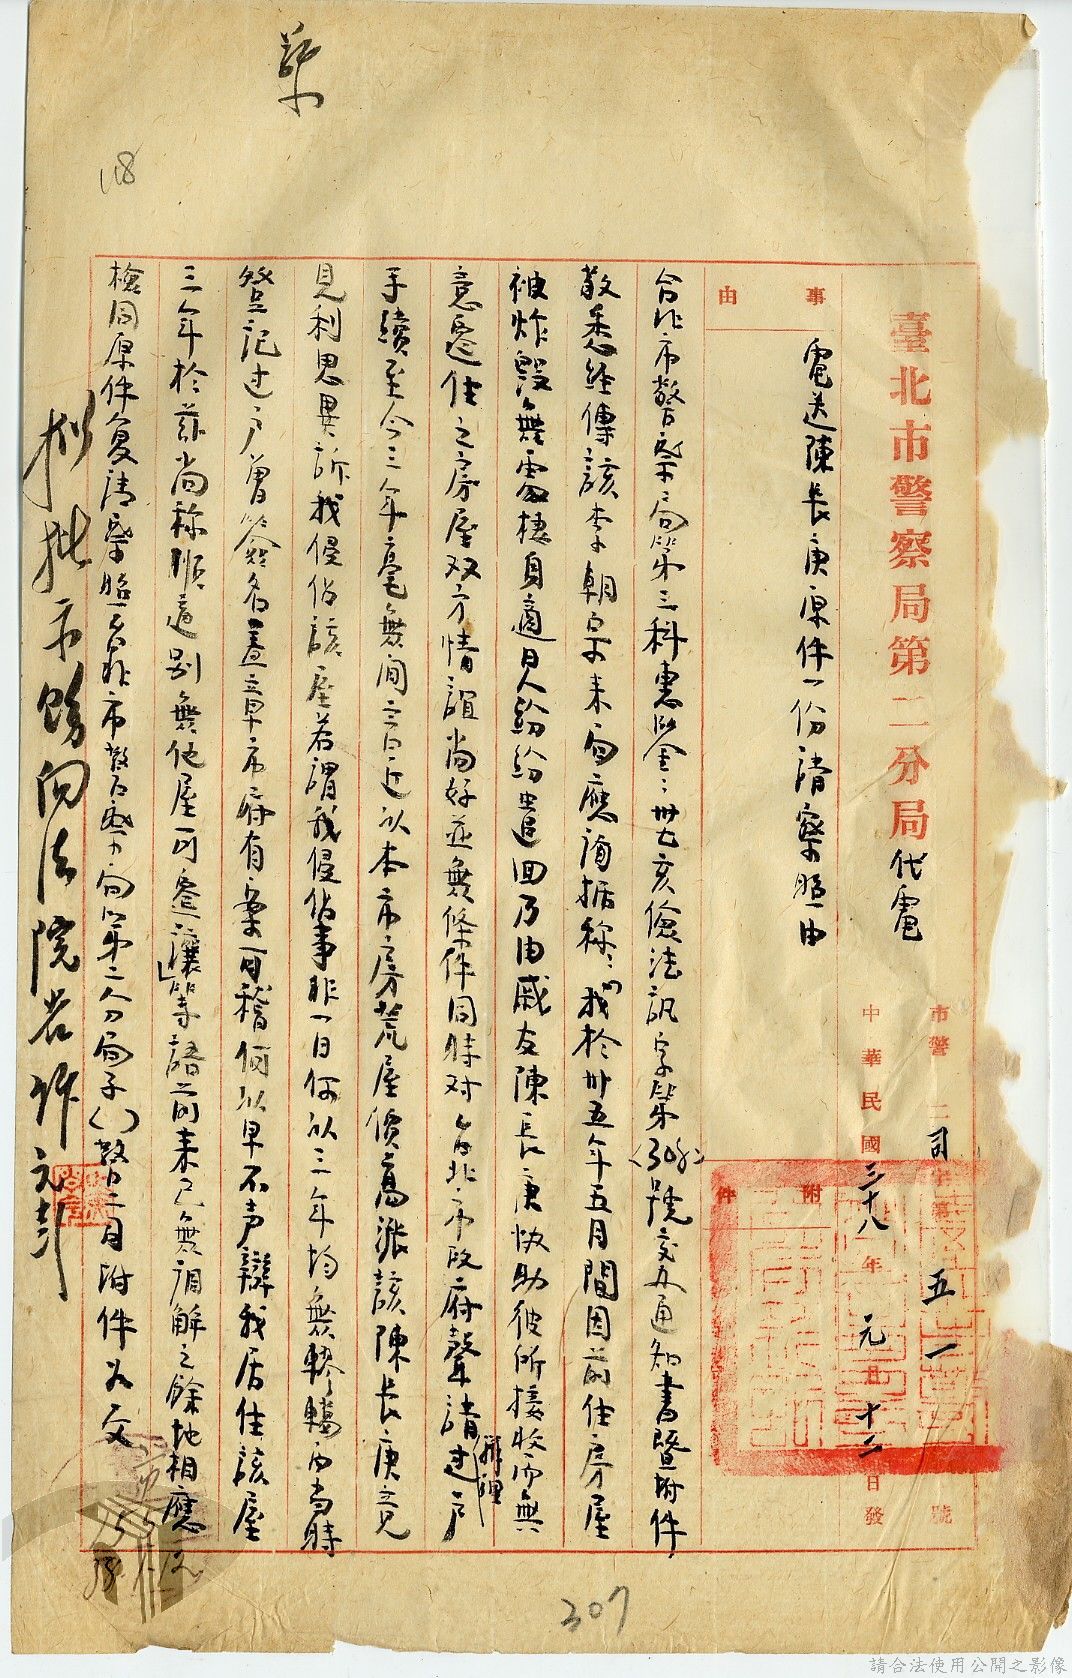 臺北市警察局第二分局代電
市警二司字第五一號
中華民國三十八年元月十二日發
事由
電送陳長庚原件一份請察照由
附件
台北市警察局第三科惠鑒：卅七亥儉法訊字第(308)號交办通知書暨附件
敬悉經傳該李朝宗來局應詢据称：「我於卅五年五月間因前住房屋
被炸毀無處棲身適日人紛紛遣回乃由戚友陳長庚協助彼所接收而無
意遷住之房屋双方情誼尚好並無條件同時对台北市政府聲請辦理過户
手續至今三年毫無间言近以本市房荒屋價高漲該陳長庚竟
見利思異訴我侵佔該屋若謂我侵佔事非一日何以三年均無轇轕而當時
登記过户曾簽名蓋章市府有案可稽何以早不声辯我居住該屋
三年於茲尚称順適别無他屋可遷讓」等語前來已無调解之餘地相應
檢同原件复請察照台北市警察局第二分局子()警二司附件为文
拟批示向法院告訴
118
307
請合法使用公開之影像